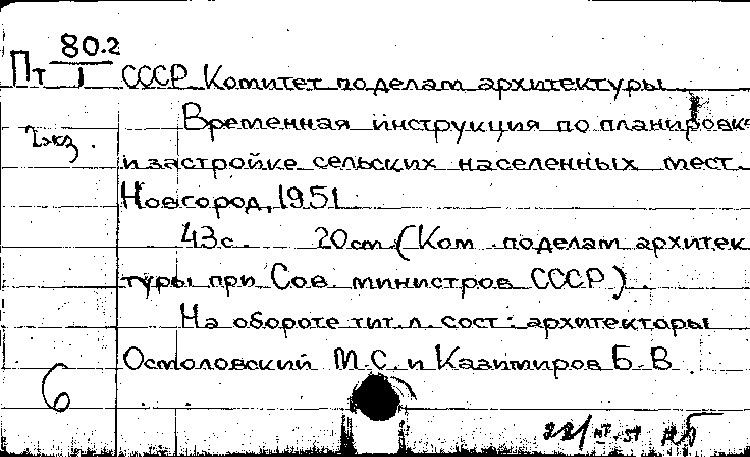 Пт 80.2
1
СССР Комитет по делам архитектуры
Временная инструкция по планировке
2 экз.
и застройке сельских населенных мест.
Новгород, 1951
43с. 20см (Ком. по делам архитек
туры при Сов. министров СССР).
На обороте тит. л. сост: архитекторы
Остоловский М.С. и Казимиров Б.В
6